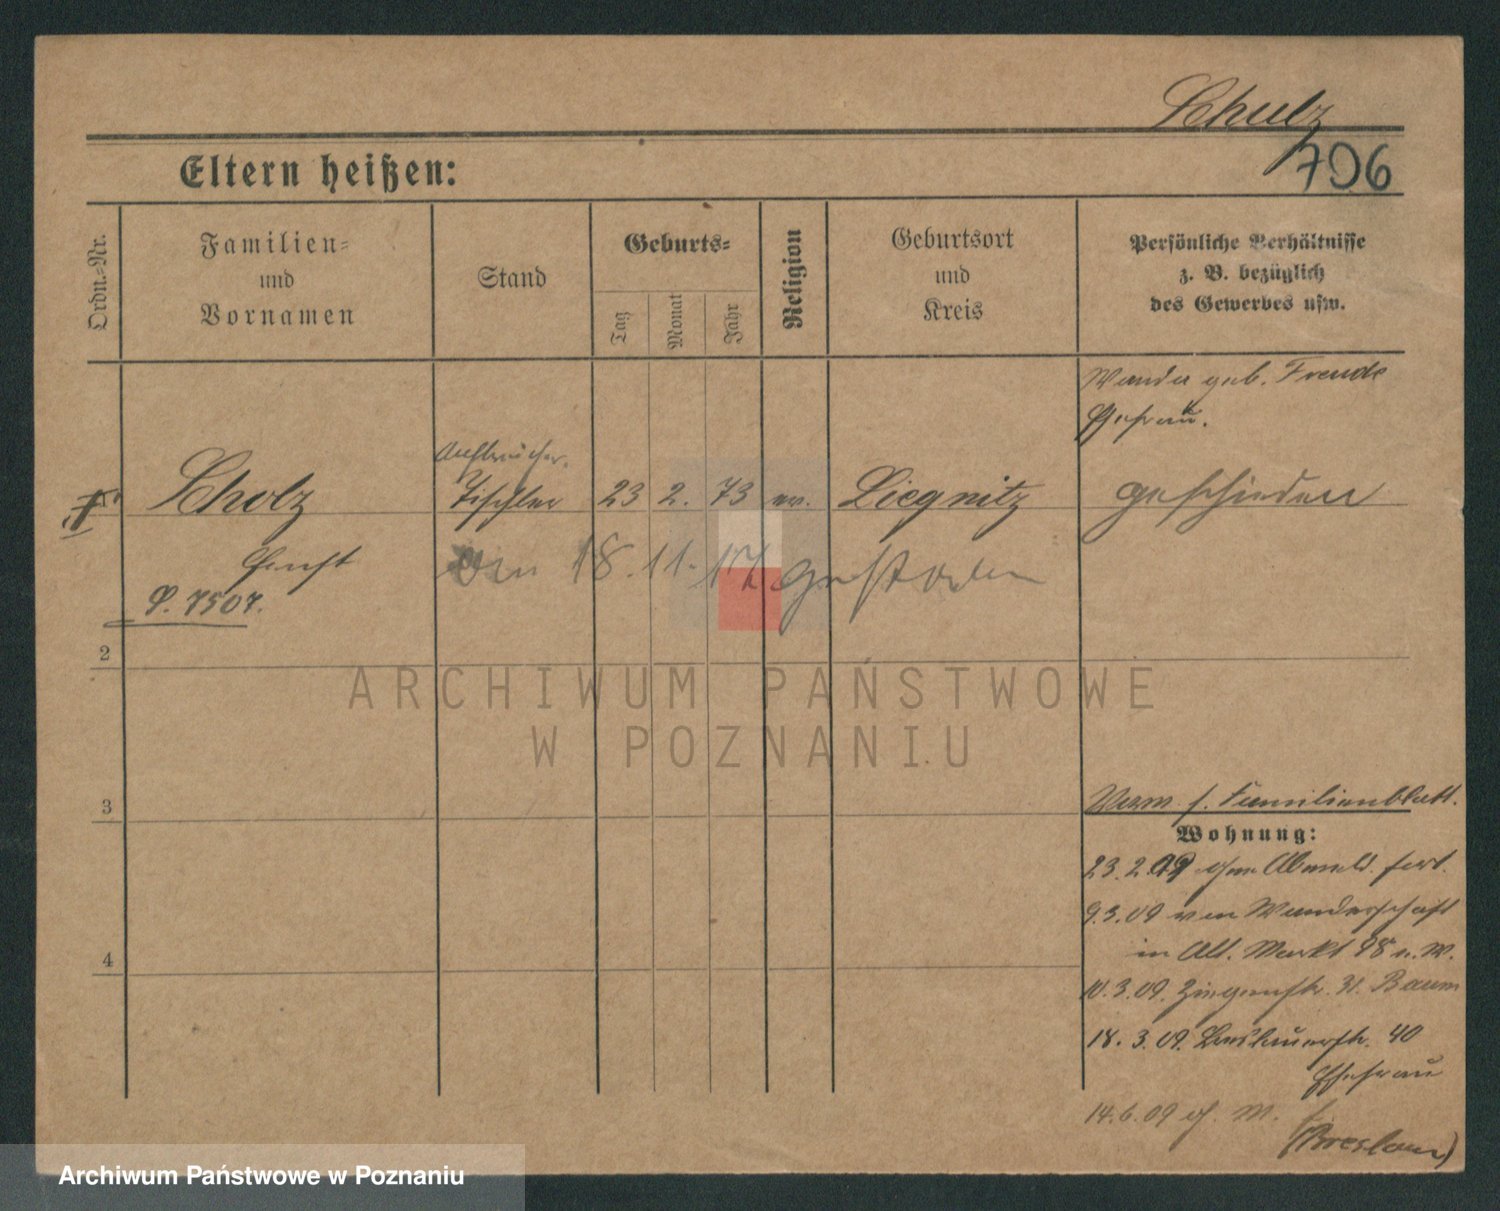 Schulz
Eltern heißen:
706
Ordn.-Nr.
Familien-
und
Vornamen
Stand
Geburts-
Tag
Monat
Jahr
Religion
Geburtsort
und
Kreis
Persönliche Verhältnisse
z. B. bezüglich
des Gewerbes usw.
Wanda geb. Freude
Ehefrau.
Scholz Tischler 23 2. 73 ev. Liegnitz geschieden
Ernst
den 18. 11. 17 gestorben
P. 7507.
2
ARCHIWUM PAŃSTWOWE
W POZNANIU
3
Verm. s. Familienblatt.
Wohnung:
23.2.09 ohne Abmeld. fort.
9.3.09 von Wanderschaft
in Alt. Markt 98 n. W.
4
10.3.09. Ziegenstr. Baum
18.3.09. 40
Ehefrau
14.6.09
(Breslau)
Archiwum Państwowe w Poznaniu